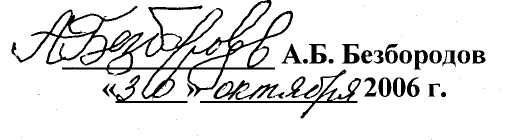 А Безбородов А.Б. Безбородов
«30» октября 2006 г.